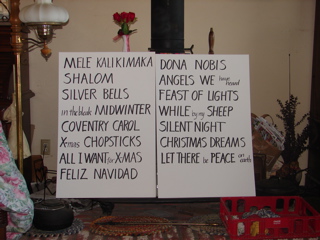 MELE KALIKIMAKA
SHALOM
SILVER BELLS
in the bleak MIDWINTER
COVENTRY CAROL
X-mas CHOPSTICKS
ALL I WANT for X-MAS
FELIZ NAVIDAD
DONA NOBIS
ANGELS WE have heard
FEAST OF LIGHTS
WHILE by my SHEEP
SILENT NIGHT
CHRISTMAS DREAMS
LET THERE be PEACE on earth